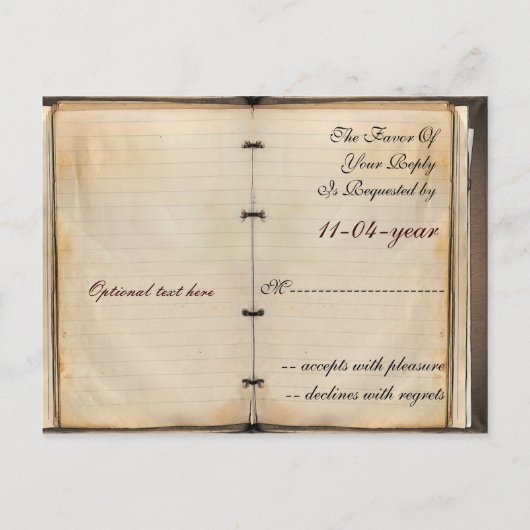 The Favor Of
Your Reply
Is Requested by
11-04-year
Optional text here
M----------------------
-- accepts with pleasure
-- declines with regrets